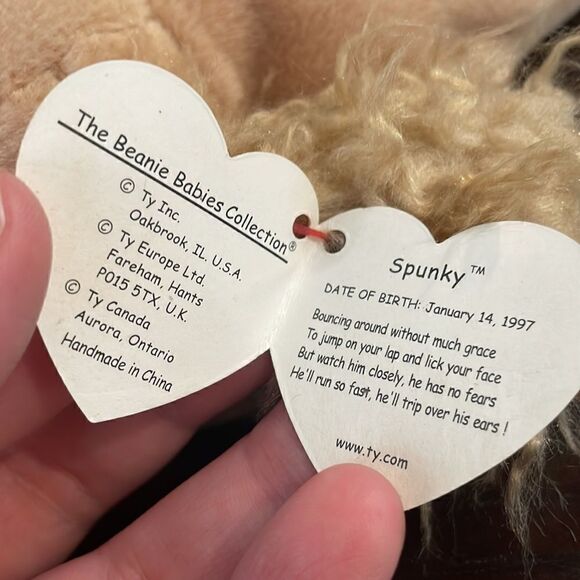 The Beanie Babies Collection®
© Ty Inc.
Oakbrook, IL. U.S.A.
© Ty Europe Ltd.
Fareham, Hants
PO15 5TX, U.K.
© Ty Canada
Aurora, Ontario
Handmade in China
Spunky™
DATE OF BIRTH: January 14, 1997
Bouncing around without much grace
To jump on your lap and lick your face
But watch him closely, he has no fears
He'll run so fast, he'll trip over his ears !
www.ty.com